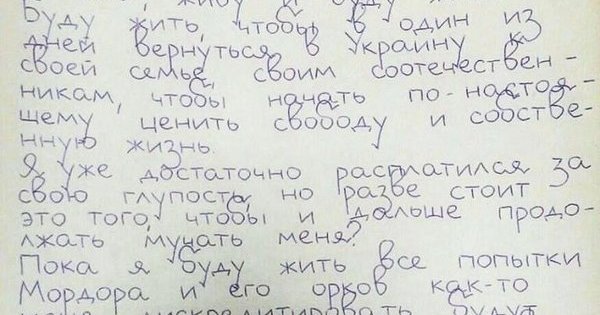 живу и буду
Буду жить, чтобы в один из
дней вернуться в Украину к
своей семье, своим соотечествен-
никам, чтобы начать по-настоя-
щему ценить свободу и собстве-
нную жизнь.
Я уже достаточно расплатился за
свою глупость, но разве стоит
это того, чтобы и дальше продо-
лжать мучать меня?
Пока я буду жить все попытки
Мордора и его орков как-то
дискредитировать будут